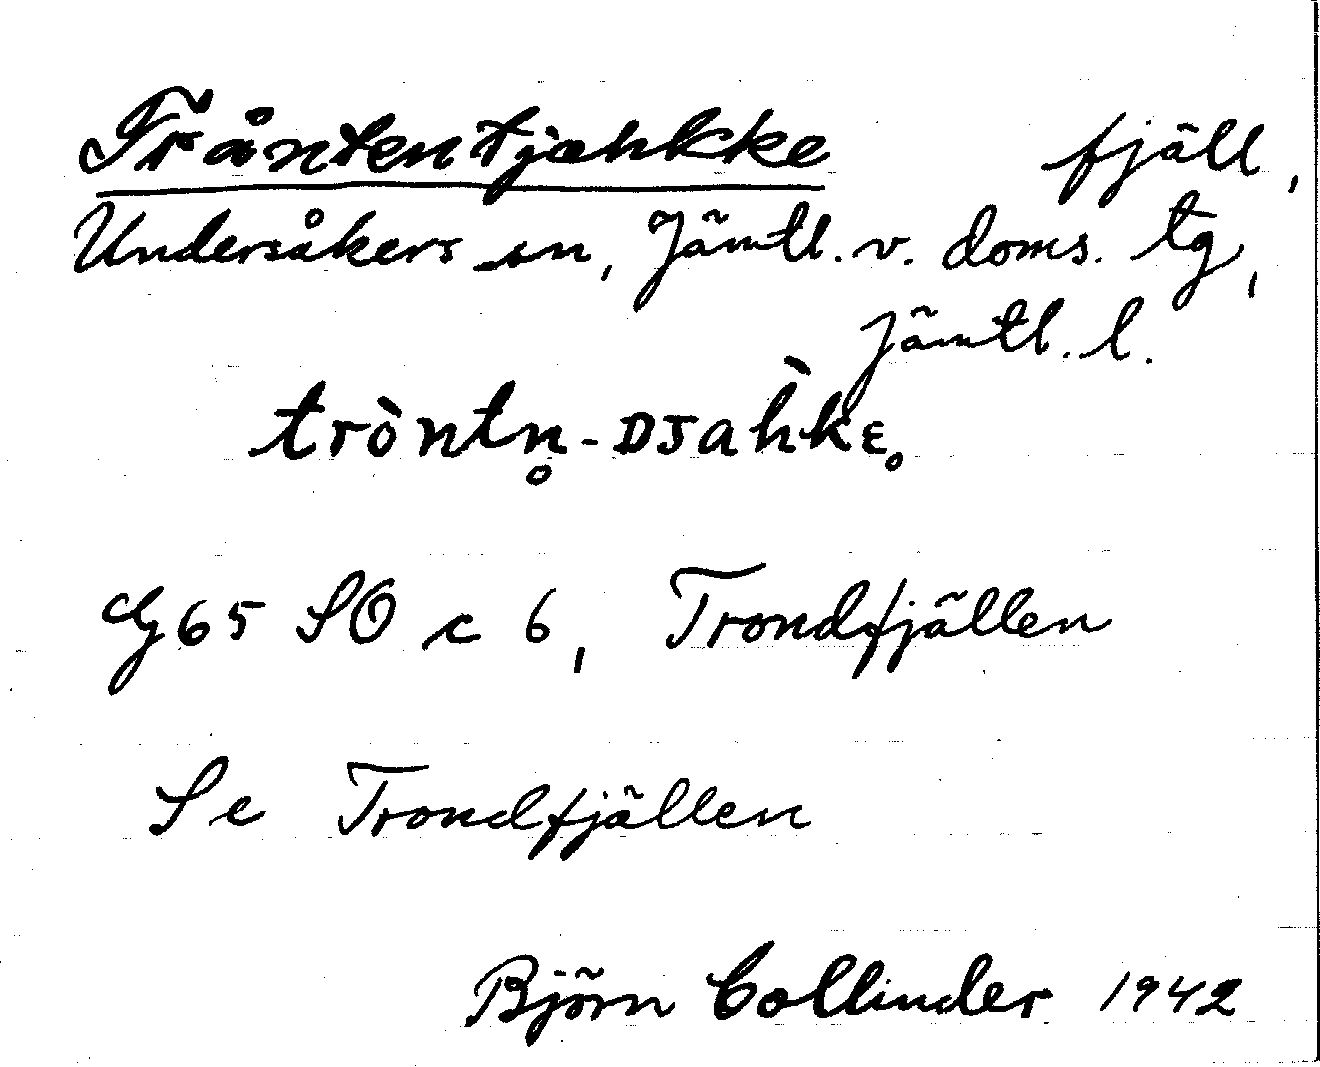 Tråntentjahkke fjäll,
Undersåkers sn, Jämtl. v. doms. tg,
Jämtl. l.
tròntn̥-ᴅᴊàhkᴇ̥
G65 SO c 6, Trondfjällen
Se Trondfjällen
Björn Collinder 1942